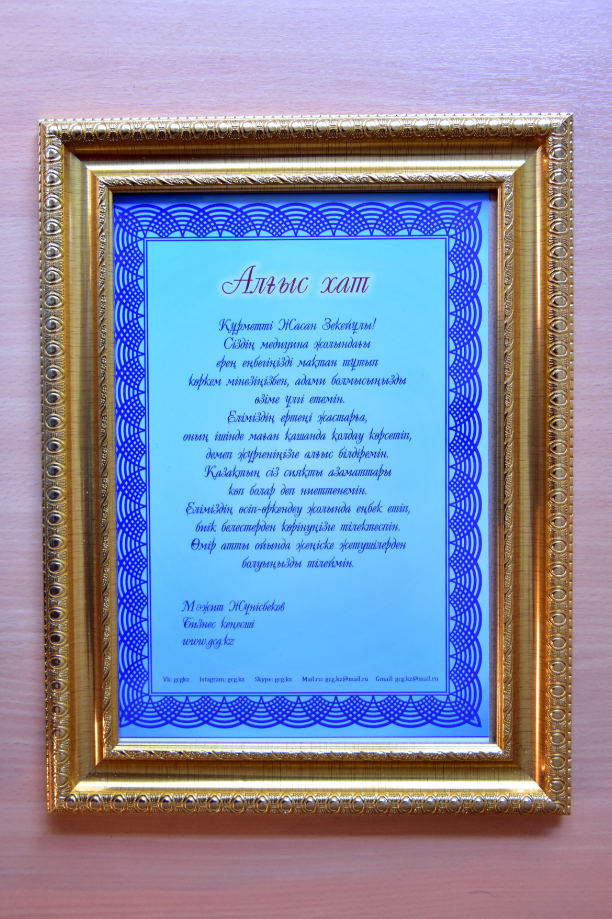 Алғыс хат
Құрметті Жасан Зекейұлы!
Сіздің медицина жолындағы
ерең еңбегіңізді мақтан тұтып
көркем мінезіңізбен, адами болмысыңызды
өзіме үлгі етемін.
Еліміздің ертеңі жастарға,
оның ішінде маған қашанда қолдау көрсетіп,
демеп жүргеніңізге алғыс білдіремін.
Қазақтың сіз сияқты азаматтары
көп болар деп ниеттенемін.
Еліміздің өсіп-өркендеу жолында еңбек етіп,
биік белестерден көрінуіңізге тілектеспін.
Өмір атты ойында жеңіске жетушілерден
болуыңызды тілеймін.
Мәжит Жүнісбеков
Бизнес кеңесші
www.gcg.kz
Vk: gcgkz Istagram: gcg.kz Skype: gcg.kz Mail.ru: gcg.kz@mail.ru Gmail: gcg.kz@mail.ru